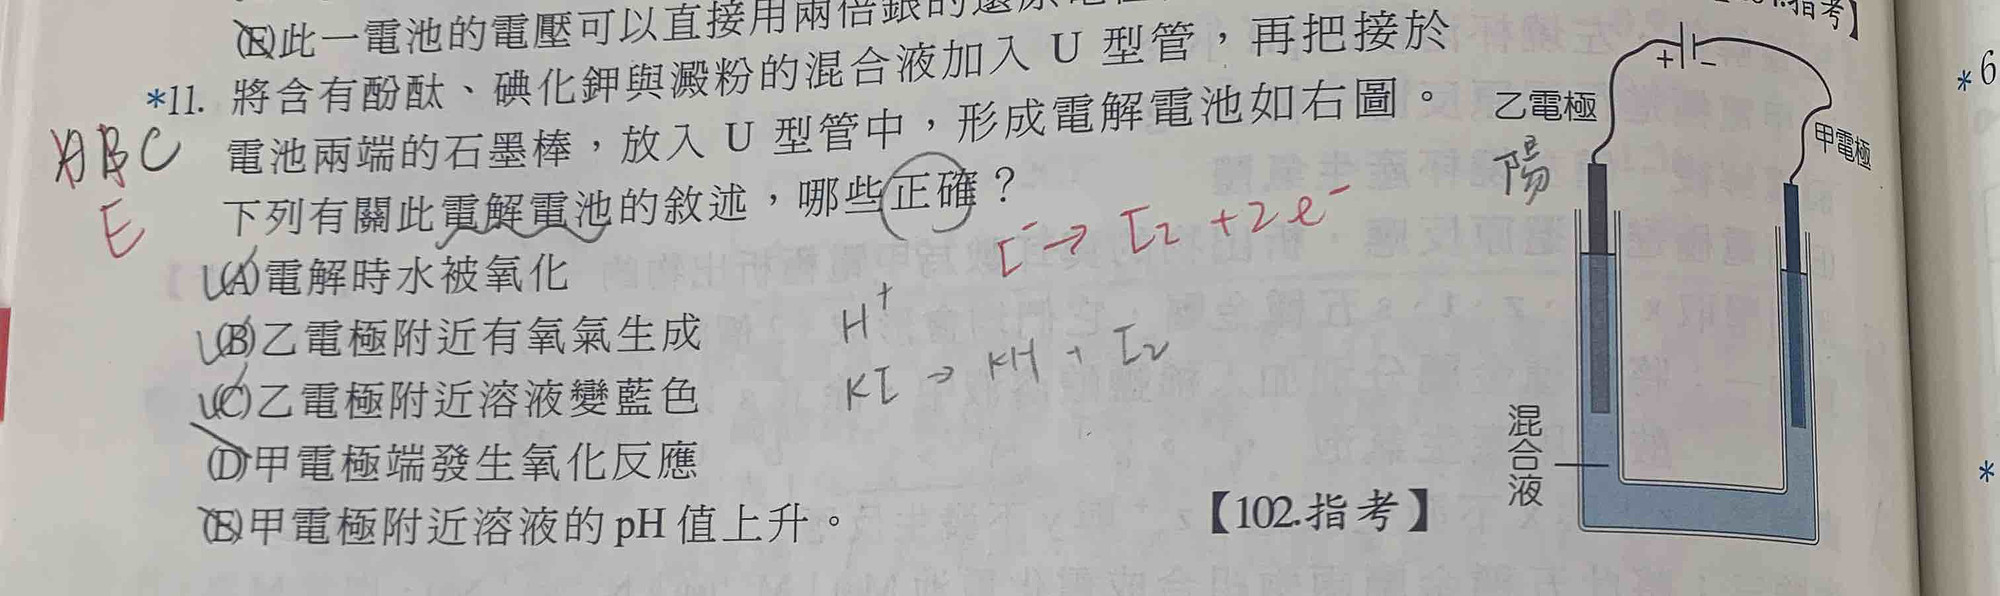 (E)此一電池的電壓可以直接用兩倍銀的還原電
.指考】
*11. 將含有酚酞、碘化鉀與澱粉的混合液加入 U 型管，再把接於
電池兩端的石墨棒，放入 U 型管中，形成電解電池如右圖。
下列有關此電解電池的敘述，哪些正確？
ABC
E
I⁻→ I₂ + 2e⁻
(A)電解時水被氧化
(B)乙電極附近有氧氣生成
(C)乙電極附近溶液變藍色
(D)甲電極端發生氧化反應
(E)甲電極附近溶液的 pH 值上升。
【102.指考】
H⁺
KI → KH + I₂
+ −
乙電極
陽
甲電極
混合液
*6
*